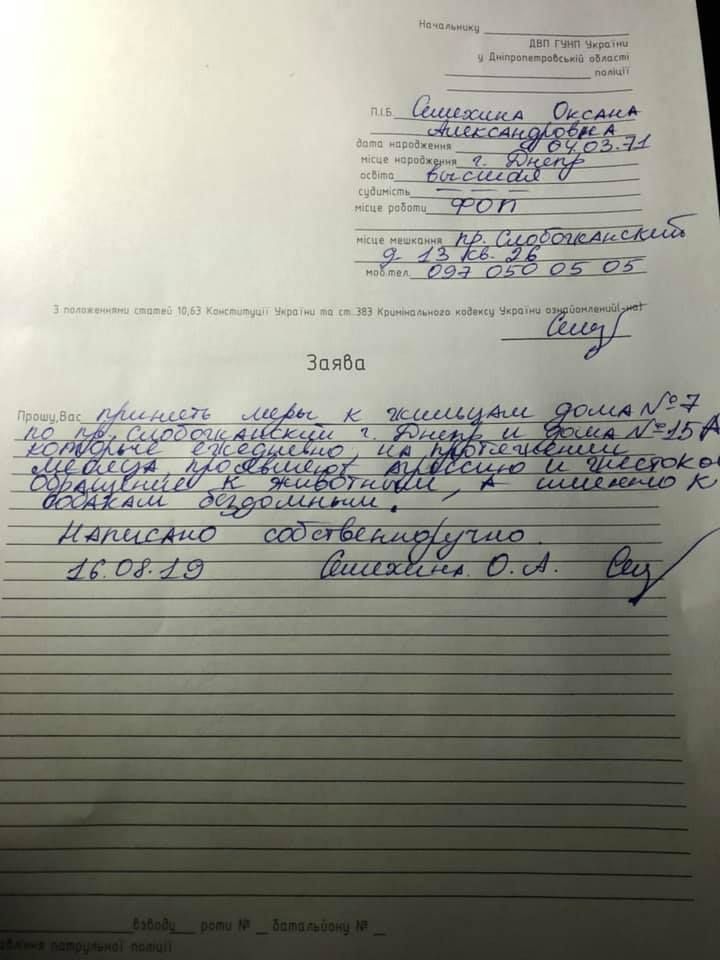 Начальнику
ДВП ГУНП України
у Дніпропетровській області
поліції
П.І.Б. Семехина Оксана
Александровна
дата народження 04.03.71
місце народження г. Днепр
освіта высшая
судимість — — —
місце роботи ФОП
місце мешкання пр. Слобожанский
д 13 кв. 26
моб.тел. 097 050 05 05
З положеннями статей 10,63 Конституції України та ст. 383 Кримінального кодексу України ознайомлений(-на)
Заява
Прошу, Вас принять меры к жильцам дома №7
по пр. Слобожанский г. Днепр и дома №15А
которые ежедневно, на протяжении
месяца проявляют агрессию и жестоко
обращение к животным, а именно к
собакам бездомным.
Написано собственноручно.
16.08.19 Семехина О.А.
взводу роти № батальйону №
патрульної поліції